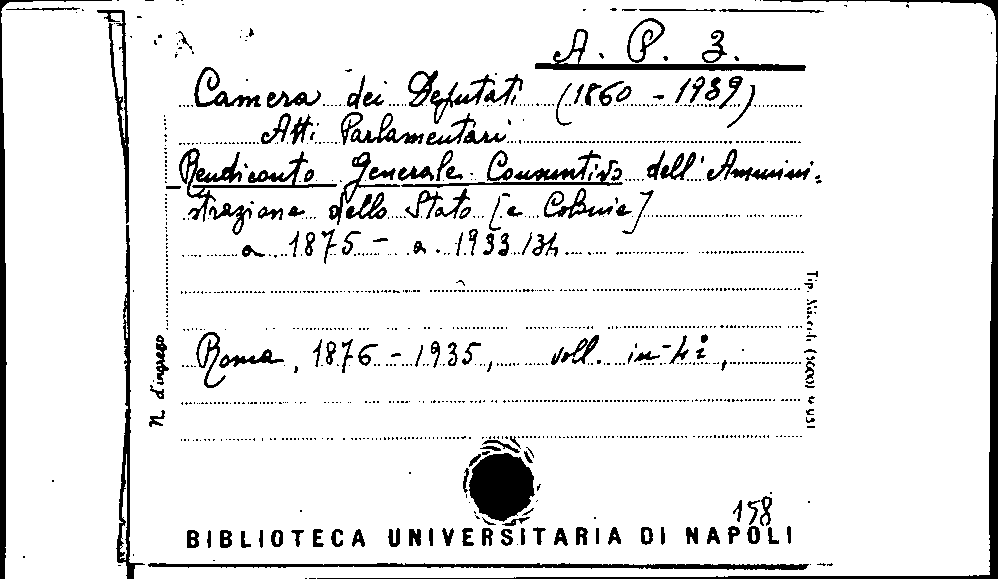 A. P. 3.
Camera dei Deputati (1860 - 1939)
Atti Parlamentari
Rendiconto Generale Consuntivo dell'Ammini-
strazione dello Stato [e Colonie]
a 1875 - a. 1933/34
Roma, 1876 - 1935, voll. in-4°,
N. d'ingresso
158
BIBLIOTECA UNIVERSITARIA DI NAPOLI